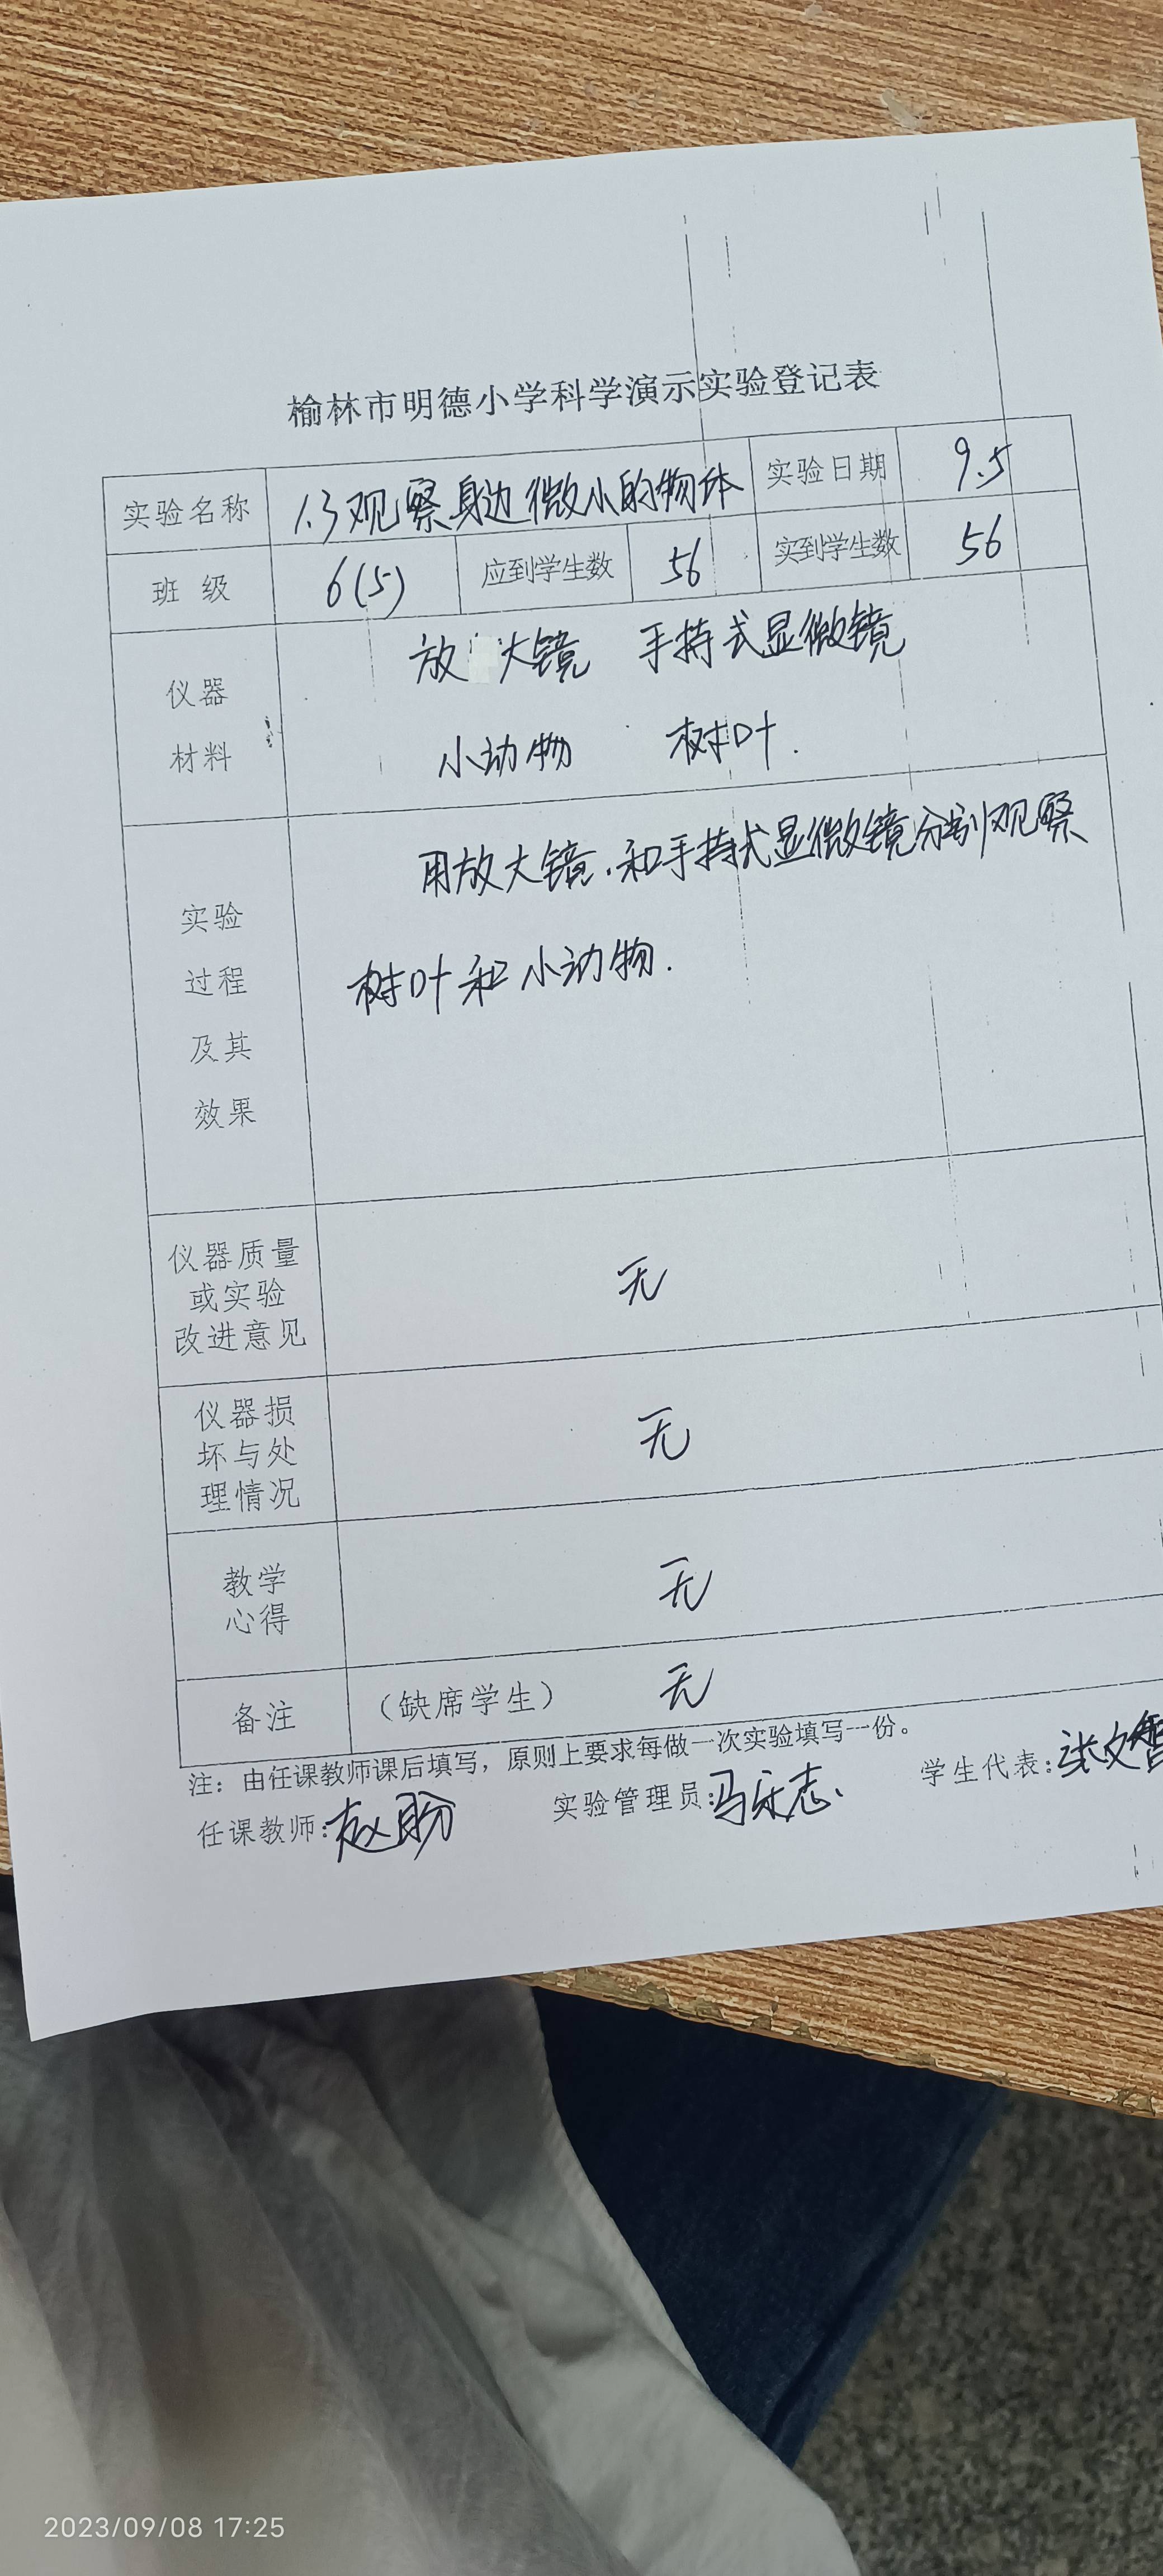 榆林市明德小学科学演示实验登记表
实验名称 1.3观察身边微小的物体 实验日期 9.5
班 级 6(5) 应到学生数 56 实到学生数 56
仪器
材料
放大镜 手持式显微镜
小动物 树叶.
实验
过程
及其
效果
用放大镜.和手持式显微镜分别观察
树叶和小动物.
仪器质量
或实验
改进意见
无
仪器损
坏与处
理情况
无
教学
心得
无
备注 （缺席学生） 无
注：由任课教师课后填写，原则上要求每做一次实验填写一份。
任课教师:赵盼 实验管理员:马永志 学生代表:张文
2023/09/08 17:25